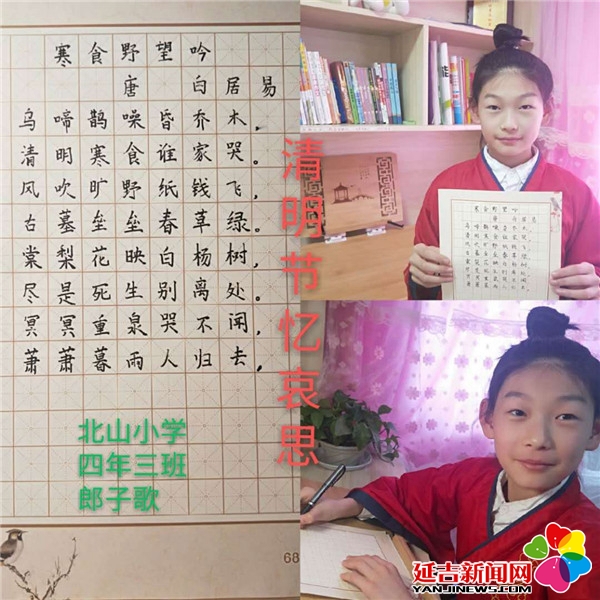 寒食野望吟
唐 白居易
乌啼鹊噪昏乔木，
清明寒食谁家哭。
风吹旷野纸钱飞，
古墓垒垒春草绿。
棠梨花映白杨树，
尽是死生别离处。
冥冥重泉哭不闻，
萧萧暮雨人归去，
清明节忆哀思
北山小学
四年三班
郎子歌
68
延吉新闻网
WWW.YANJINEWS.COM